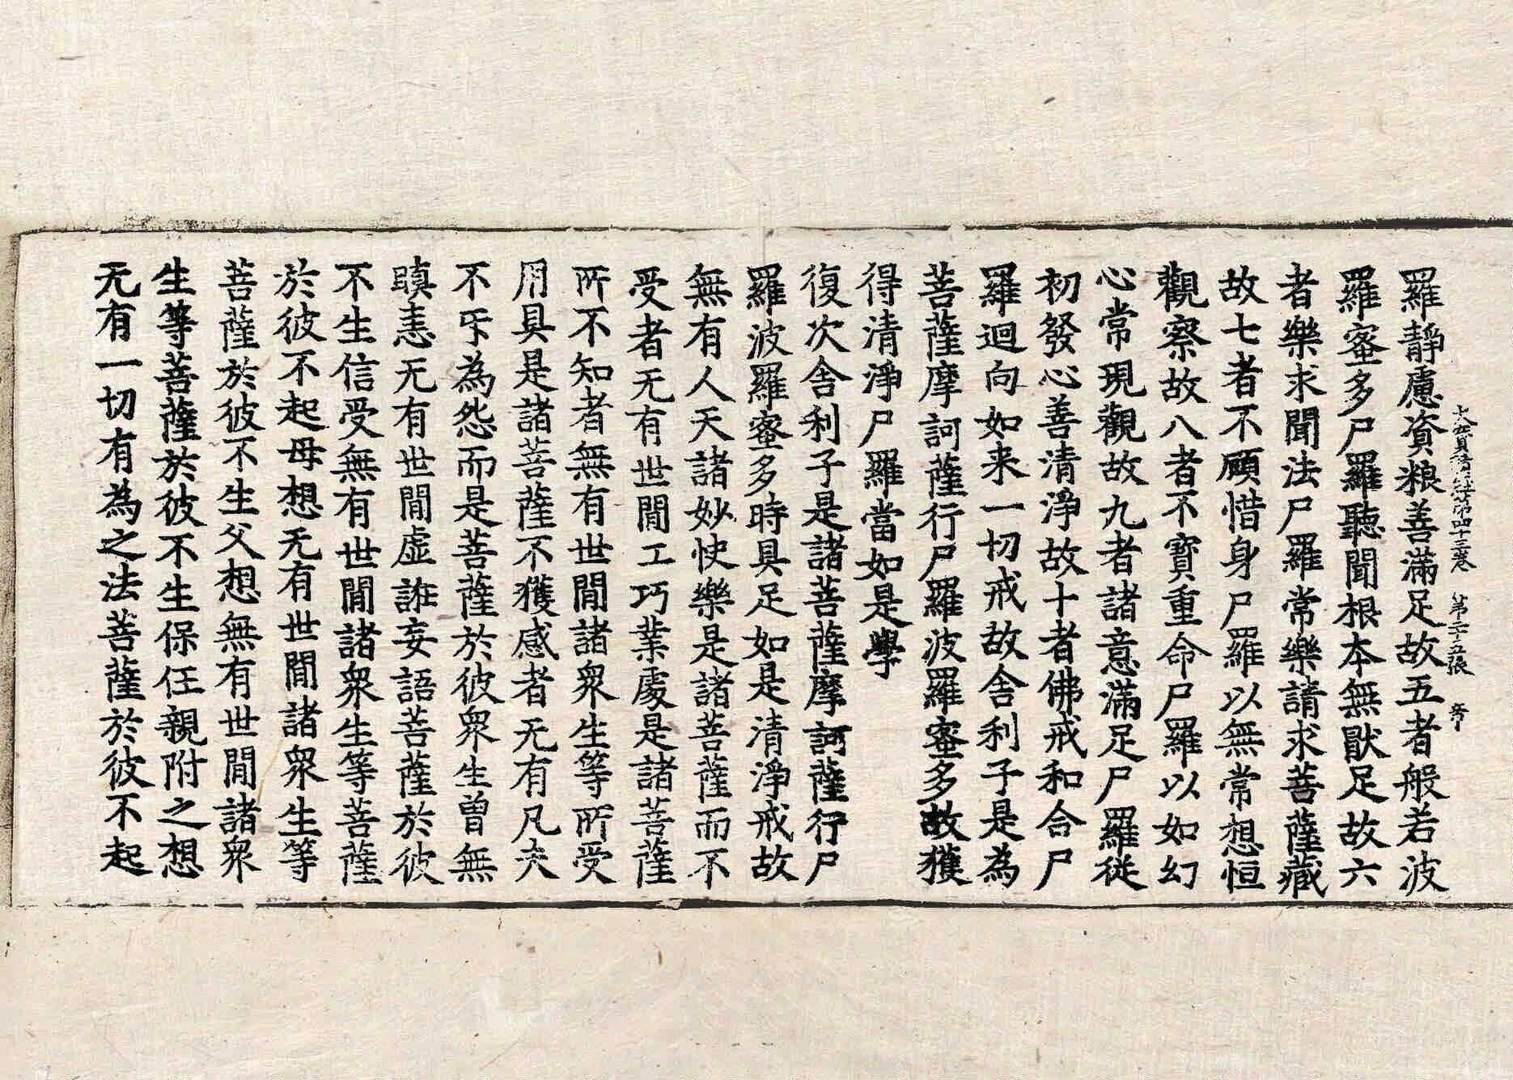 羅靜慮資粮善滿足故五者般若波
大寶積經第四十三卷 第二十五張
羅蜜多尸羅聽聞根本無猒足故六
者樂求聞法尸羅常樂請求菩薩藏
故七者不顧惜身尸羅以無常想恒
觀察故八者不寳重命尸羅以如幻
心常現觀故九者諸意滿足尸羅從
初發心善清淨故十者佛戒和合尸
羅迴向如来一切戒故舎利子是為
菩薩摩訶薩行尸羅波羅蜜多故獲
得清淨尸羅當如是學
復次舎利子是諸菩薩摩訶薩行尸
羅波羅蜜多時具足如是清淨戒故
無有人天諸妙快樂是諸菩薩而不
受者无有世間工巧業處是諸菩薩
所不知者無有世間諸衆生等所受
用具是諸菩薩不獲感者无有凡夫
不㸦為怨而是菩薩於彼衆生曾無
瞋恚无有世間虛誑妄語菩薩於彼
不生信受無有世間諸衆生等菩薩
於彼不起母想无有世間諸衆生等
菩薩於彼不生父想無有世間諸衆
生等菩薩於彼不生保任親附之想
无有一切有為之法菩薩於彼不起